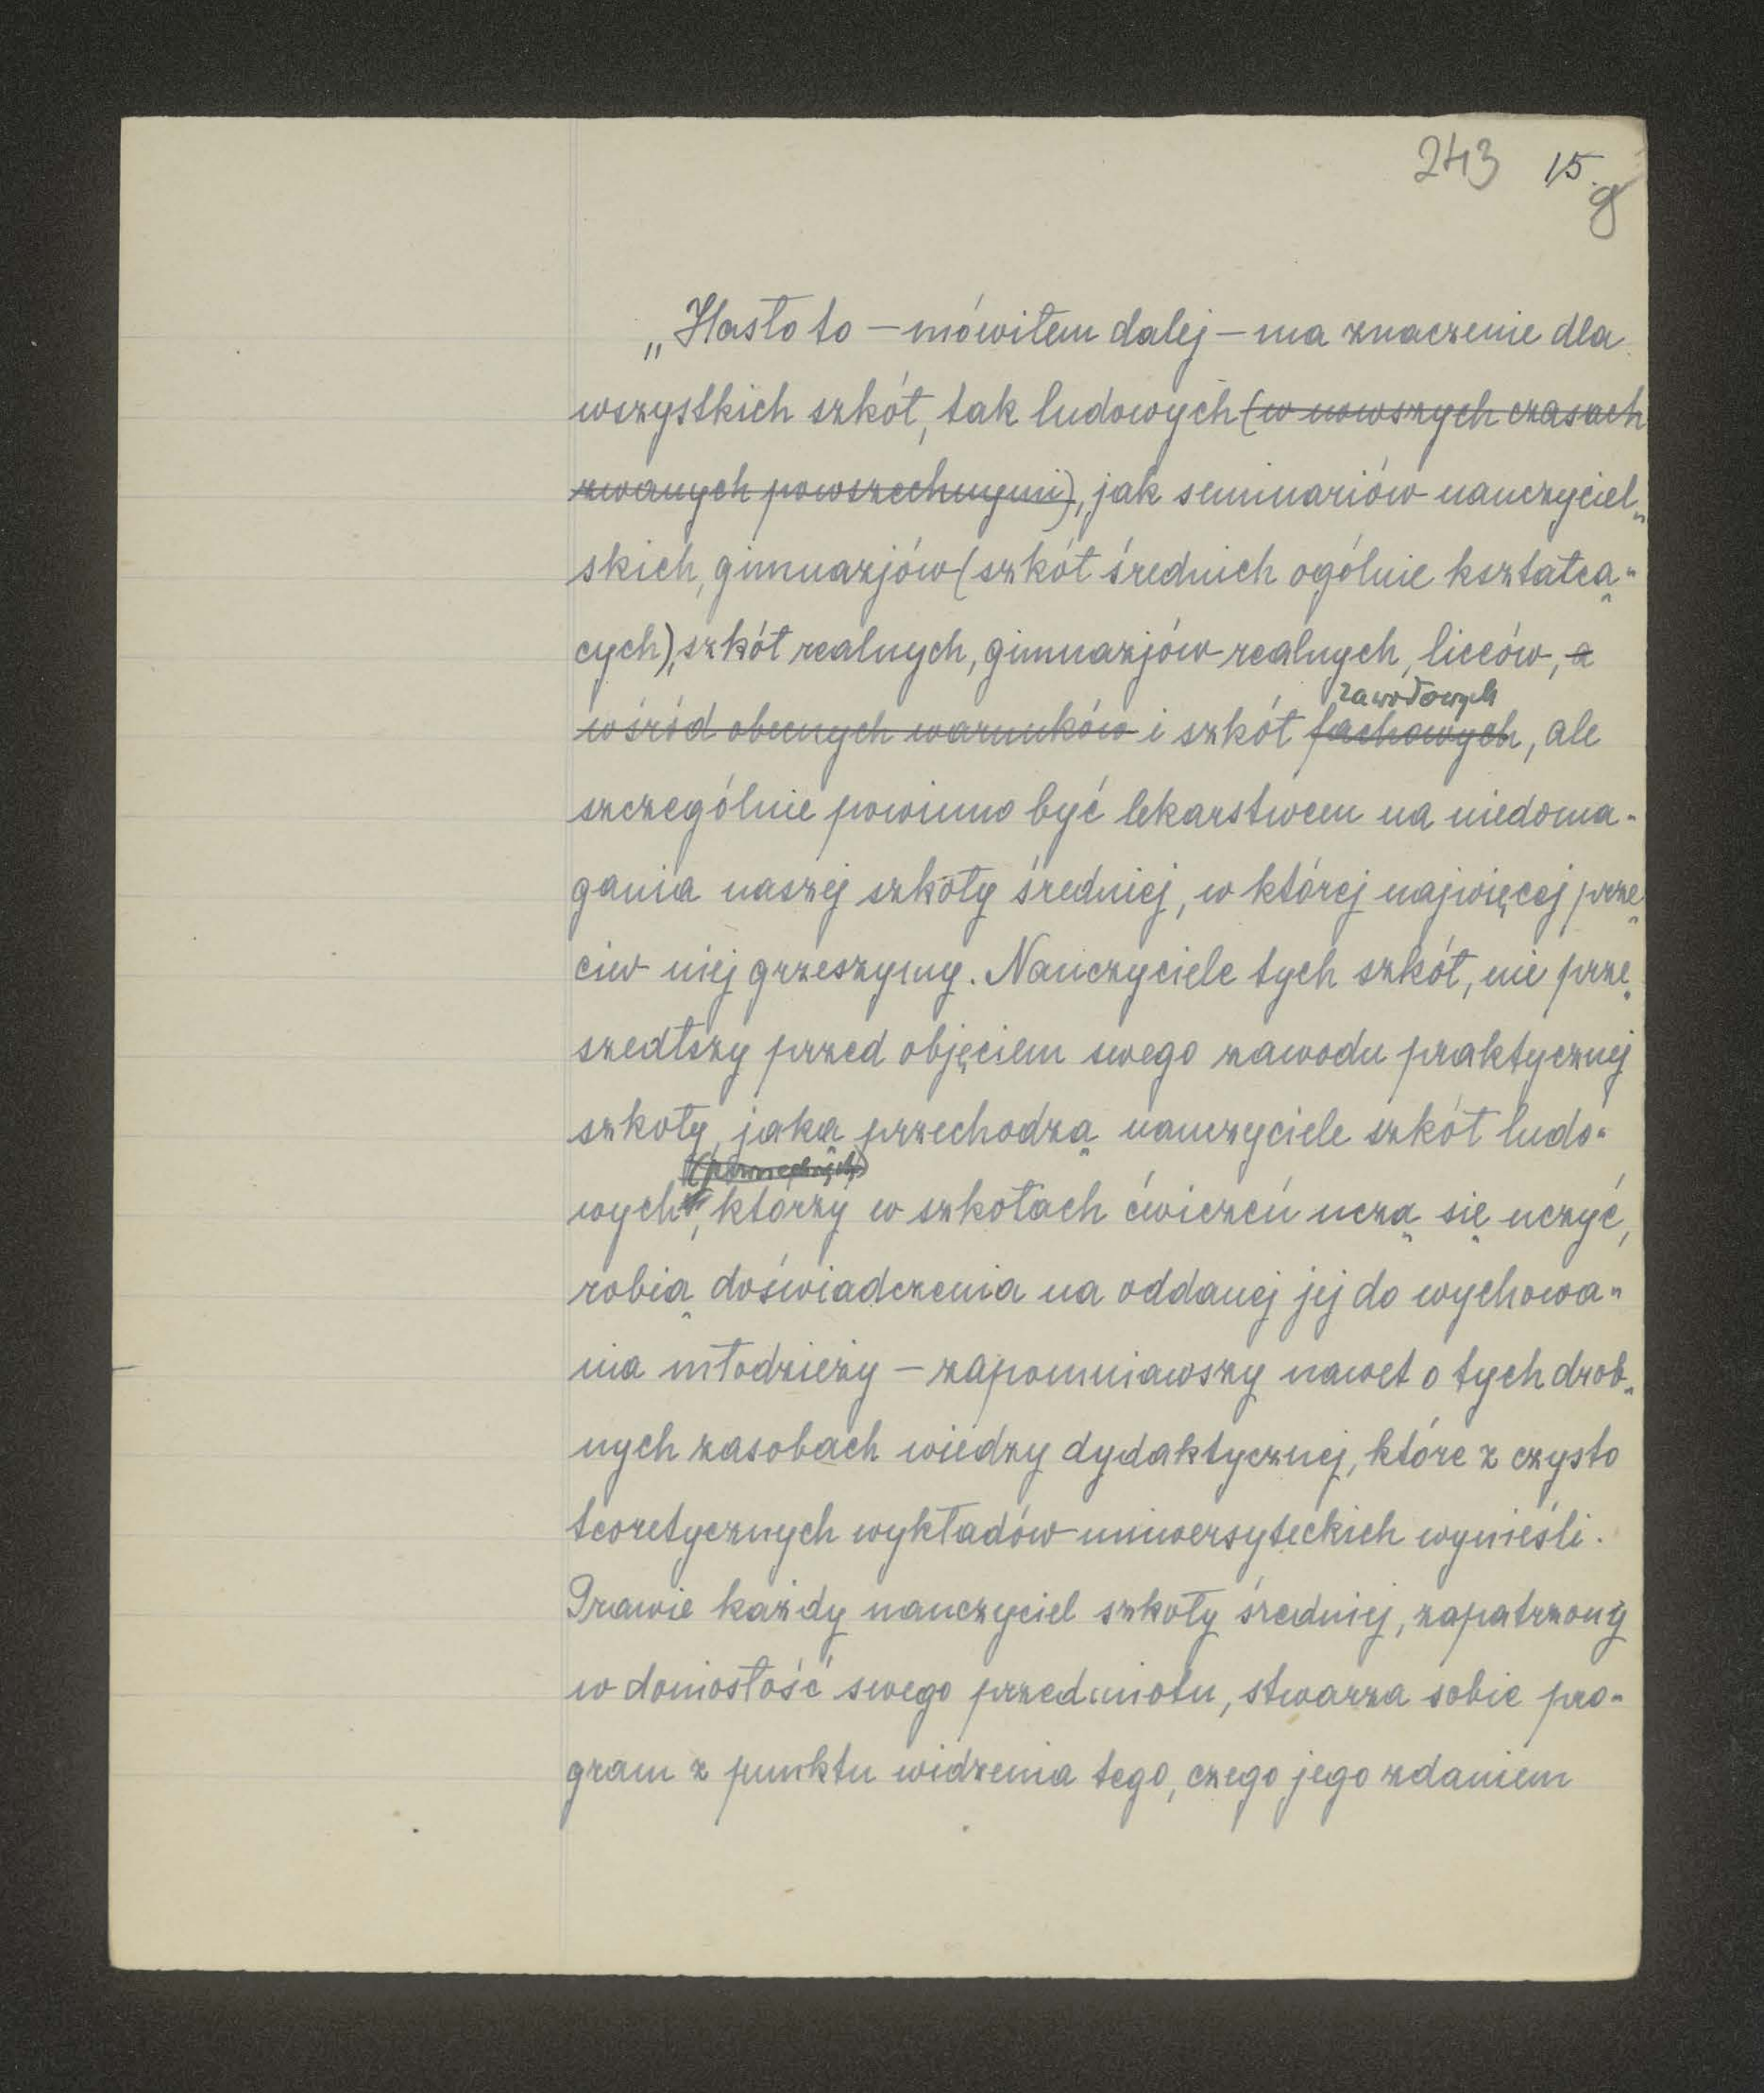 243 15.
„Hasło to – mówiłem dalej – ma znaczenie dla
wszystkich szkół, tak ludowych (w nowszych czasach
zwanych powszechnymi), jak seminariów nauczyciel„
skich, gimnazjów (szkół średnich ogólnie kształcą„
cych), szkół realnych, gimnazjów realnych, liceów, a
zawodowych
wśród obecnych warunków i szkół fachowych, ale
szczególnie powinno być lekarstwem na niedoma„
gania naszej szkoły średniej, w której najwięcej prze„
ciw niej grzeszymy. Nauczyciele tych szkół, nie prze„
szedłszy przed objęciem swego zawodu praktycznej
szkoły, jaką przechodzą nauczyciele szkół ludo„
(powszechnych)
wych, którzy w szkołach ćwiczeń uczą się uczyć,
robią doświadczenia na oddanej jej do wychowa„
nia młodzieży – zapomniawszy nawet o tych drob„
nych zasobach wiedzy dydaktycznej, które z czysto
teoretycznych wykładów uniwersyteckich wynieśli.
Prawie każdy nauczyciel szkoły średniej, zapatrzony
w doniosłość swego przedmiotu, stwarza sobie pro„
gram z punktu widzenia tego, czego jego zdaniem